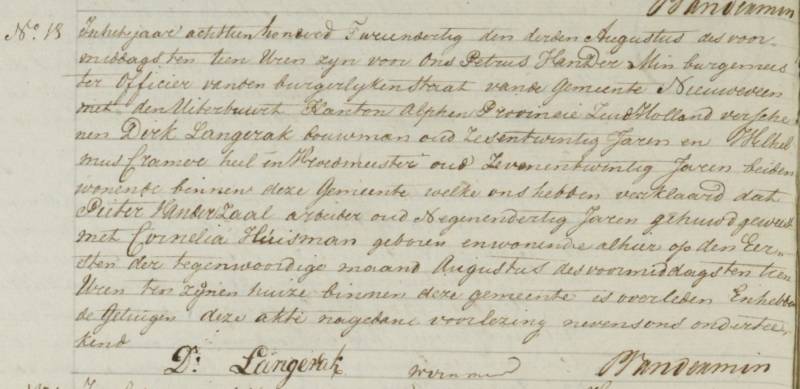 P VanderMin
No. 18 In het jaar achttien honderd Twee en dertig den derden Augustus des voor-
middags ten tien Uren zyn voor Ons Petrus VanDer Min burgemees
ter Officier vanden burgerlyken Staat van de Gemeente Nieuwveen
met den Uiterbuurt Kanton Alphen Provincie Zuid Holland versche
nen Derk Langerak bouwman oud Zesentwintig Jaren en Wilhel
mus Cramer heel en Vroedmeester oud Zevenentwintig Jaren beiden
wonende binnen deze Gemeente welke ons hebben verklaard dat
Pieter VanderZaal arbeider oud Negenendertig Jaren gehuwd geweest
met Cornelia Huisman geboren en wonende alhier op den Eer-
sten der tegenwoordige maand Augustus des voormiddags ten tien
Uren ten zijnen huize binnen deze gemeente is overleden En hebben
de Getuigen deze akte na gedane voorlezing nevens ons ondertee-
kend
D: Langerak P VanderMin